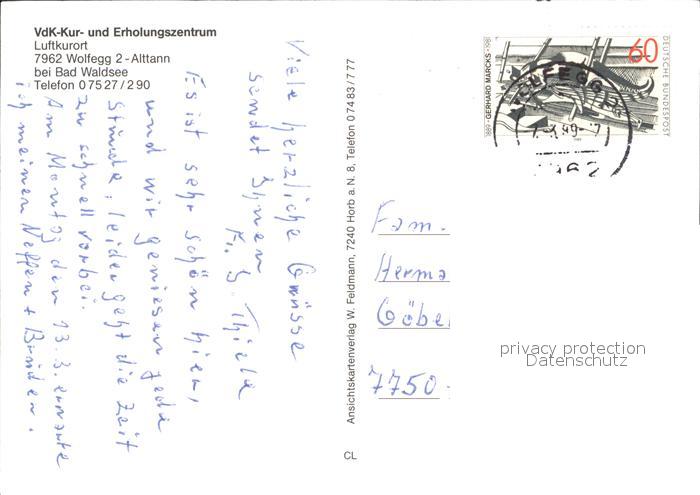 VdK-Kur- und Erholungszentrum
Luftkurort
7962 Wolfegg 2 - Alttann
bei Bad Waldsee
Telefon 0 75 27 / 2 90
Viele herzliche Grüsse
sendet Ihnen
Thiele
Es ist sehr schön hier,
und wir geniesen jede
Stunde, leider geht die Zeit
zu schnell vorbei.
Am Montag den 13.3. erwarte
ich meinen Neffen + Brüder.
Ansichtskartenverlag W. Feldmann, 7240 Horb a. N. 8, Telefon 0 74 83 / 7 77
CL
1889 · GERHARD MARCKS · 1981
60
DEUTSCHE BUNDESPOST
WOLFEGG
Fam.
Herma
Göbel
7750
privacy protection
Datenschutz